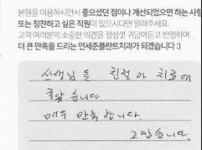 본원을 이용하시면서 좋으셨던 점이나 개선되었으면 하는 사항
또는 칭찬하고 싶은 직원이 있으시다면 알려주세요.
고객 여러분의 소중한 의견을 정성껏 귀담아듣고 반영하여
더 큰 만족을 드리는 연세준플란트치과가 되겠습니다 :)
선생님들 친절과 치료에
감사합니다.
매우 만족합니다.
고맙습니다